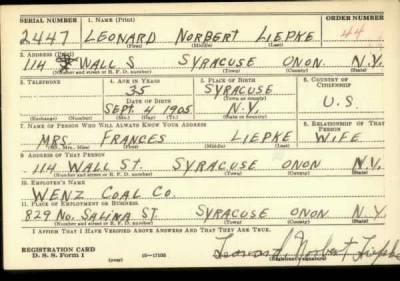 SERIAL NUMBER 1. NAME (Print) ORDER NUMBER
2447 LEONARD NORBERT LIEPKE 44
(First) (Middle) (Last)
2. ADDRESS (Print)
114 WALL S SYRACUSE ONON. N.Y.
(Number and street or R. F. D. number) (Town) (County) (State)
3. TELEPHONE 4. AGE IN YEARS 5. PLACE OF BIRTH 6. COUNTRY OF CITIZENSHIP
35 SYRACUSE
DATE OF BIRTH (Town or county)
SEPT. 4 1905 N.Y. U.S.
(Exchange) (Number) (Mo.) (Day) (Yr.) (State or country)
7. NAME OF PERSON WHO WILL ALWAYS KNOW YOUR ADDRESS 8. RELATIONSHIP OF THAT PERSON
MRS. FRANCES LIEPKE WIFE
(Mr., Mrs., Miss) (First) (Middle) (Last)
9. ADDRESS OF THAT PERSON
114 WALL ST. SYRACUSE ONON N.Y.
(Number and street or R. F. D. number) (Town) (County) (State)
10. EMPLOYER'S NAME
WENZ COAL CO.
11. PLACE OF EMPLOYMENT OR BUSINESS
829 NO. SALINA ST. SYRACUSE ONON N.Y.
(Number and street or R. F. D. number) (Town) (County) (State)
I AFFIRM THAT I HAVE VERIFIED ABOVE ANSWERS AND THAT THEY ARE TRUE.
REGISTRATION CARD
D. S. S. Form 1 (over) 16—17105 Leonard Norbert Liepke
(Registrant's signature)